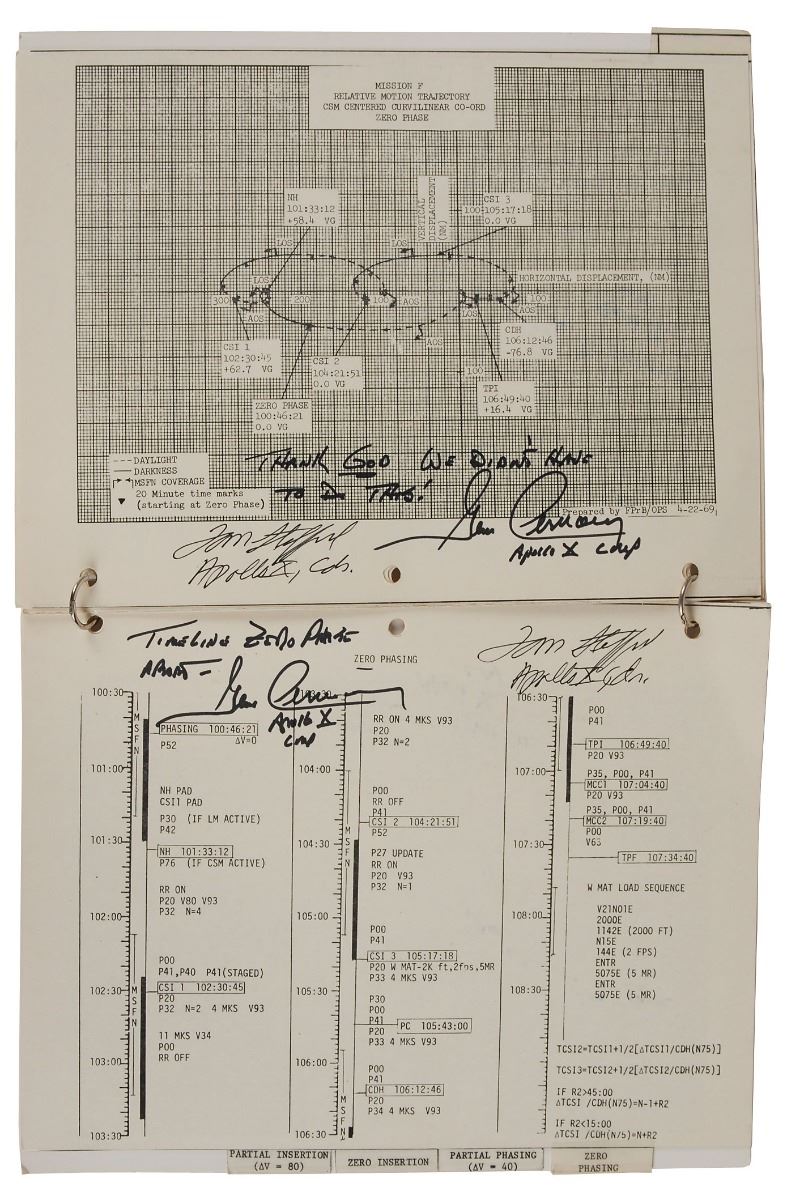 MISSION F
RELATIVE MOTION TRAJECTORY
CSM CENTERED CURVILINEAR CO-ORD
ZERO PHASE
NH
101:33:12
+58.4 VG
VERTICAL
DISPLACEMENT
(NM)
CSI 3
105:17:18
0.0 VG
100
LOS
LOS
HORIZONTAL DISPLACEMENT, (NM)
LOS
300
200
100
AOS
LOS
100
AOS
AOS
AOS
CSI 1
102:30:45
+62.7 VG
CSI 2
104:21:51
0.0 VG
CDH
106:12:46
-76.8 VG
100
TPI
106:49:40
+16.4 VG
ZERO PHASE
100:46:21
0.0 VG
---DAYLIGHT
DARKNESS
MSFN COVERAGE
20 Minute time marks
(starting at Zero Phase)
THANK GOD WE DIDN'T HAVE
TO DO THIS!
Prepared by FPrB/OPS 4-22-69
Tom Stafford
Apollo X, Cdr.
Gene Cernan
Apollo X LMP
TIMELINE ZERO PHASE
ABORT -
Gene Cernan
Apollo X
LMP
ZERO PHASING
Tom Stafford
Apollo X, Cdr.
100:30
MSFN
PHASING 100:46:21
ΔV=0
P52
101:00
NH PAD
CSI1 PAD
P30 (IF LM ACTIVE)
P42
101:30
NH 101:33:12
P76 (IF CSM ACTIVE)
RR ON
P20 V80 V93
P32 N=4
102:00
P00
P41,P40 P41(STAGED)
CSI 1 102:30:45
102:30
P20
P32 N=2 4 MKS V93
MSFN
11 MKS V34
P00
RR OFF
103:00
103:30
103:30
RR ON 4 MKS V93
P20
P32 N=2
104:00
P00
RR OFF
P41
CSI 2 104:21:51
P52
104:30
MSFN
P27 UPDATE
RR ON
P20 V93
P32 N=1
105:00
P00
P41
CSI 3 105:17:18
P20 W MAT-2K ft,2fps,5MR
P33 4 MKS V93
105:30
P30
P00
P41
PC 105:43:00
P20
P33 4 MKS V93
106:00
P00
P41
CDH 106:12:46
P20
P34 4 MKS V93
MSFN
106:30
106:30
P00
P41
TPI 106:49:40
P20 V93
107:00
P35, P00, P41
MCC1 107:04:40
P20 V93
P35, P00, P41
MCC2 107:19:40
P00
V63
107:30
TPF 107:34:40
W MAT LOAD SEQUENCE
108:00
V21N01E
2000E
1142E (2000 FT)
N15E
144E (2 FPS)
ENTR
5075E (5 MR)
ENTR
5075E (5 MR)
108:30
TCSI2=TCSI1+1/2[ΔTCSI1/CDH(N75)]
TCSI3=TCSI2+1/2[ΔTCSI2/CDH(N75)]
IF R2>45:00
ΔTCSI /CDH(N75)=N-1+R2
IF R2<15:00
ΔTCSI /CDH(N75)=N+R2
PARTIAL INSERTION
(ΔV = 80)
ZERO INSERTION
PARTIAL PHASING
(ΔV = 40)
ZERO
PHASING